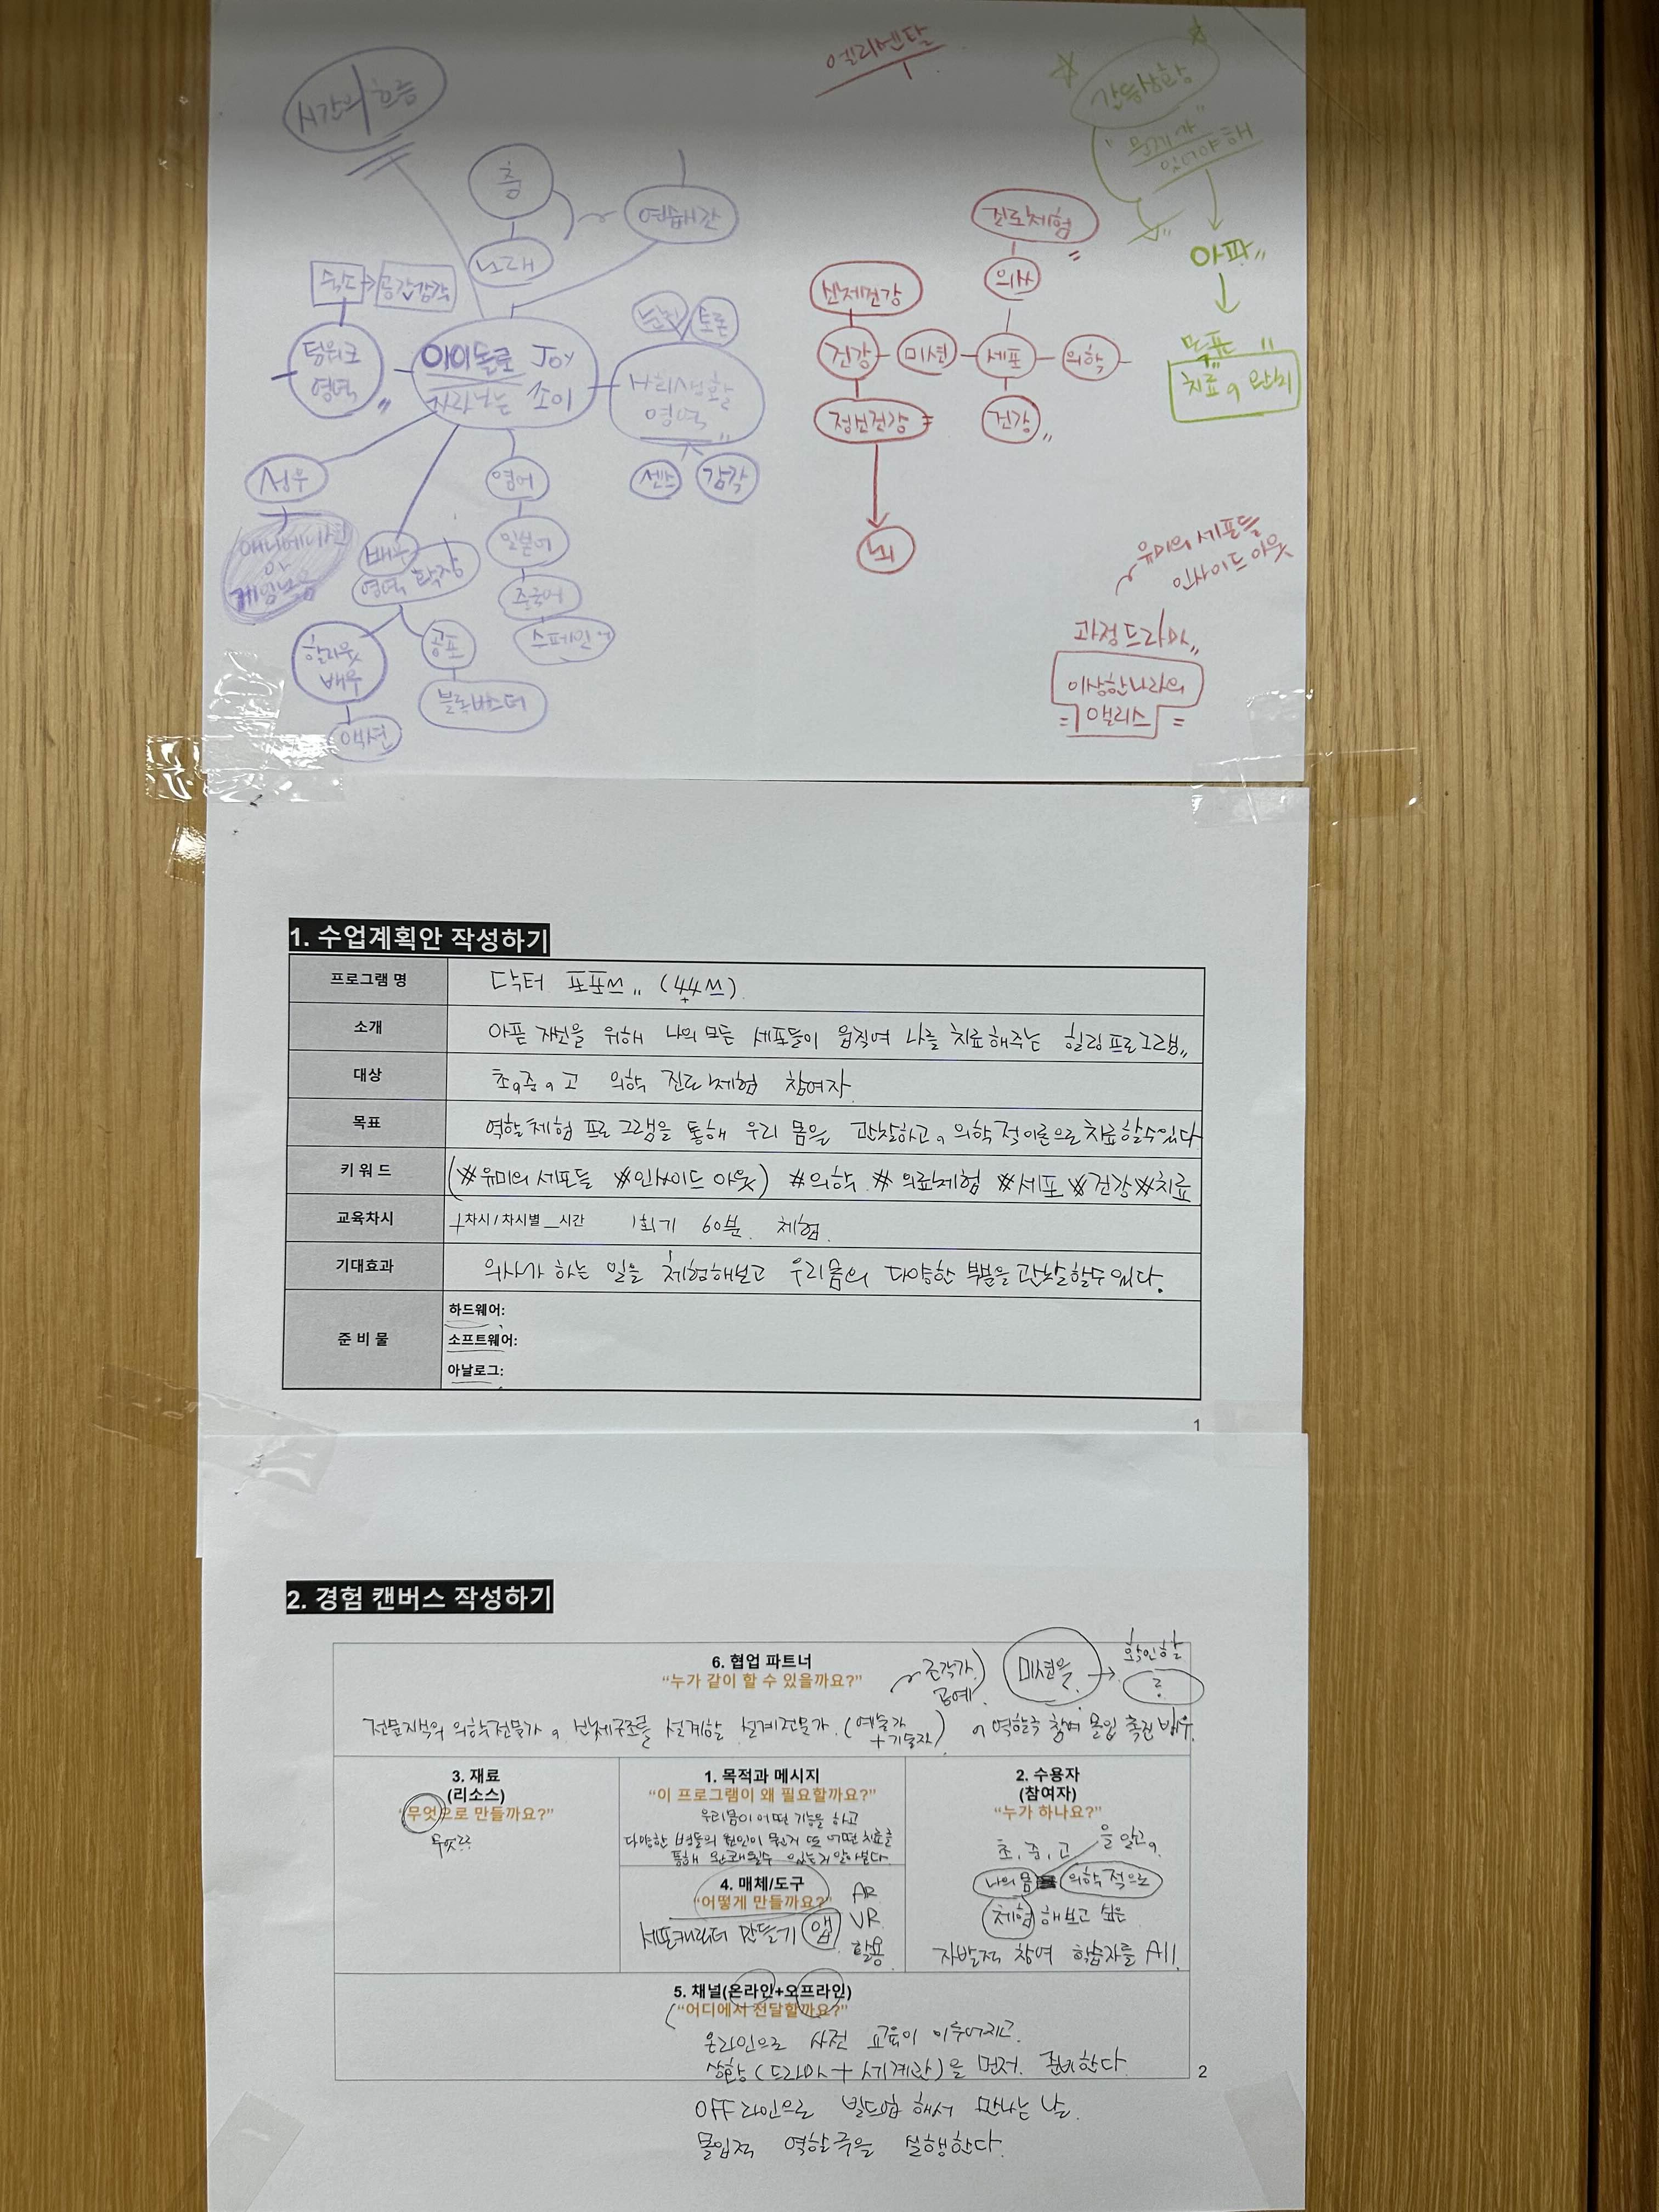 시간의 흐름
춤
노래
연습시간
숙소 → 공간감각
팀워크
영역
아이돌로 Joy
자라나는 소이
눈치
토론
사회생활
영역
센스
감각
성우
애니메이션
게임녹음
배우
영역 확장
할리웃
배우
액션
공포
블록버스터
영어
일본어
중국어
스페인어
진로체험
의사
신체건강
건강
미션
세포
의학
정신건강
건강
뇌
갈등상황
"문제가
있어야 해"
아파
목표
치료, 완치
유미의 세포들
인사이드 아웃
과정드라마
이상한나라의
앨리스
1. 수업계획안 작성하기
프로그램 명
닥터 포포쓰 (44쓰)
소개
아픈 자신을 위해 나의 모든 세포들이 움직여 나를 치료해주는 힐링프로그램
대상
초,중,고 의학 진로체험 참여자
목표
역할체험 프로그램을 통해 우리 몸을 관찰하고, 의학적이론으로 치료할수있다
키 워 드
(#유미의 세포들 #인싸이드 아웃) #의학 #의료체험 #세포 #건강 #치료
교육차시
1차시 / 차시별 __시간 1회기 60분. 체험.
기대효과
의사가 하는 일을 체험해보고 우리몸의 다양한 부분을 관찰할수 있다.
준 비 물
하드웨어:
소프트웨어:
아날로그:
1
2. 경험 캔버스 작성하기
6. 협업 파트너
"누가 같이 할 수 있을까요?"
조각가
공예
미션을 → 확인할
?
전문지식의 의학전문가, 신체구조를 설계할 설계전문가 (예술가 + 기술자), 역할극 참여 몰입 촉진 배우
3. 재료
(리소스)
"무엇으로 만들까요?"
무엇??
1. 목적과 메시지
"이 프로그램이 왜 필요할까요?"
우리몸이 어떤 기능을 하고
다양한 병들의 원인이 뭔지 또 어떤 치료를
통해 완쾌될수 있는지 알아본다.
2. 수용자
(참여자)
"누가 하나요?"
초, 중, 고
나의 몸을 알고, 의학적으로
체험해보고 싶은
자발적 참여 학습자들 All.
4. 매체/도구
"어떻게 만들까요?"
세포캐릭터 만들기 앱
AR
VR
활용
5. 채널(온라인+오프라인)
"어디에서 전달할까요?"
온라인으로 사전 교육이 이루어지고
상황(드라마 + 세계관)을 먼저 준비한다
2
OFF라인으로 빌드업 해서 만나는 날.
몰입적 역할극을 실행한다.